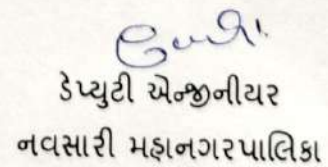 ડેપ્યુટી એન્જીનીયર
નવસારી મહાનગરપાલિકા